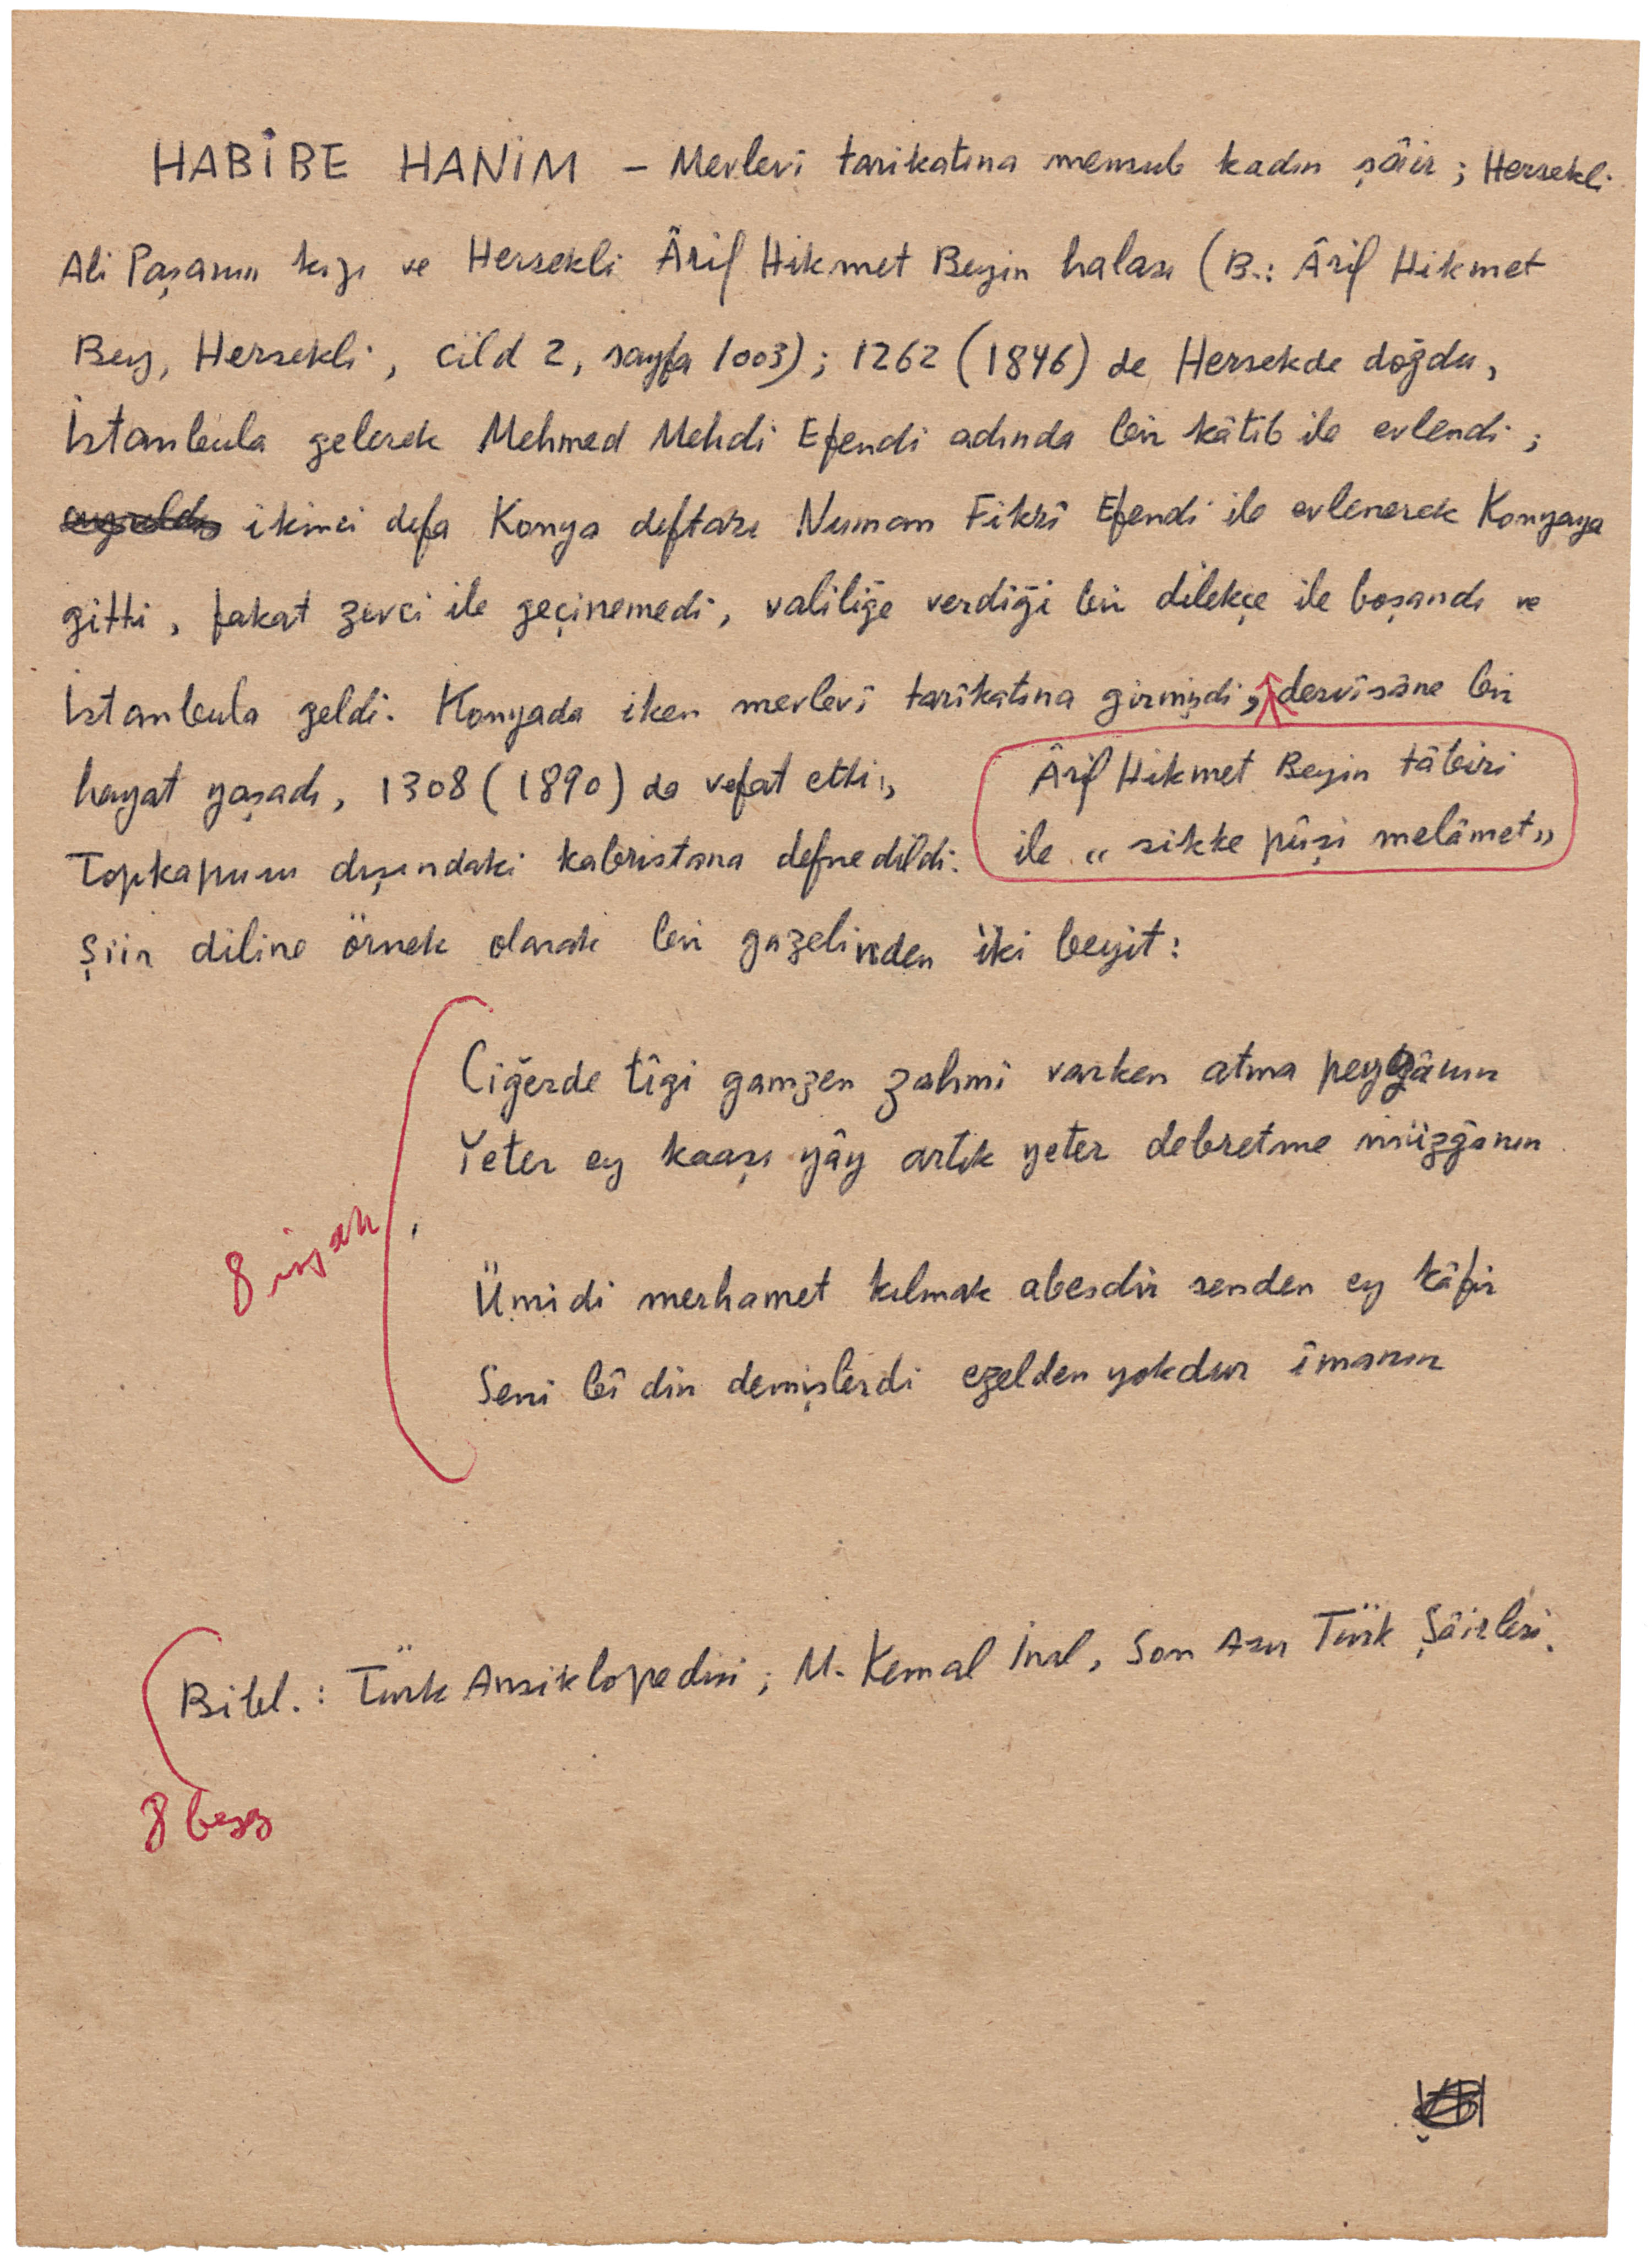 HABİBE HANIM – Mevlevî tarikatına mensub kadın şâir; Hersekli
Ali Paşanın kızı ve Hersekli Ârif Hikmet Beyin halası (B.: Ârif Hikmet
Bey, Hersekli, cild 2, sayfa 1003); 1262 (1846) de Hersekde doğdu,
İstanbula gelerek Mehmed Mehdi Efendi adında bir kâtib ile evlendi;
ikinci defa Konya deftarı Numan Fikrî Efendi ile evlenerek Konyaya
gitti, fakat zevci ile geçinemedi, valiliğe verdiği bir dilekçe ile boşandı ve
İstanbula geldi. Konyada iken mevlevî tarîkatına girmişdi, dervîşâne bir
Ârif Hikmet Beyin tâbiri
ile « sikke pûşi melâmet»
hayat yaşadı, 1308 (1890) da vefat etti,
Topkapusu dışındaki kabristana defnedildi.
Şiir diline örnek olarak bir gazelinden iki beyit:
Ciğerde tîgi gamzen zahmi varken atma peygânın
Yeter ey kaaşı yây artık yeter debretme müjgânın
8 inşah
Ümidi merhamet kılmak abesdir senden ey kâfir
Seni bî din demişlerdi ezelden yokdur îmanın
Bibl.: Türk Ansiklopedisi; M. Kemal İnal, Son Asır Türk Şâirleri.
8 beyaz